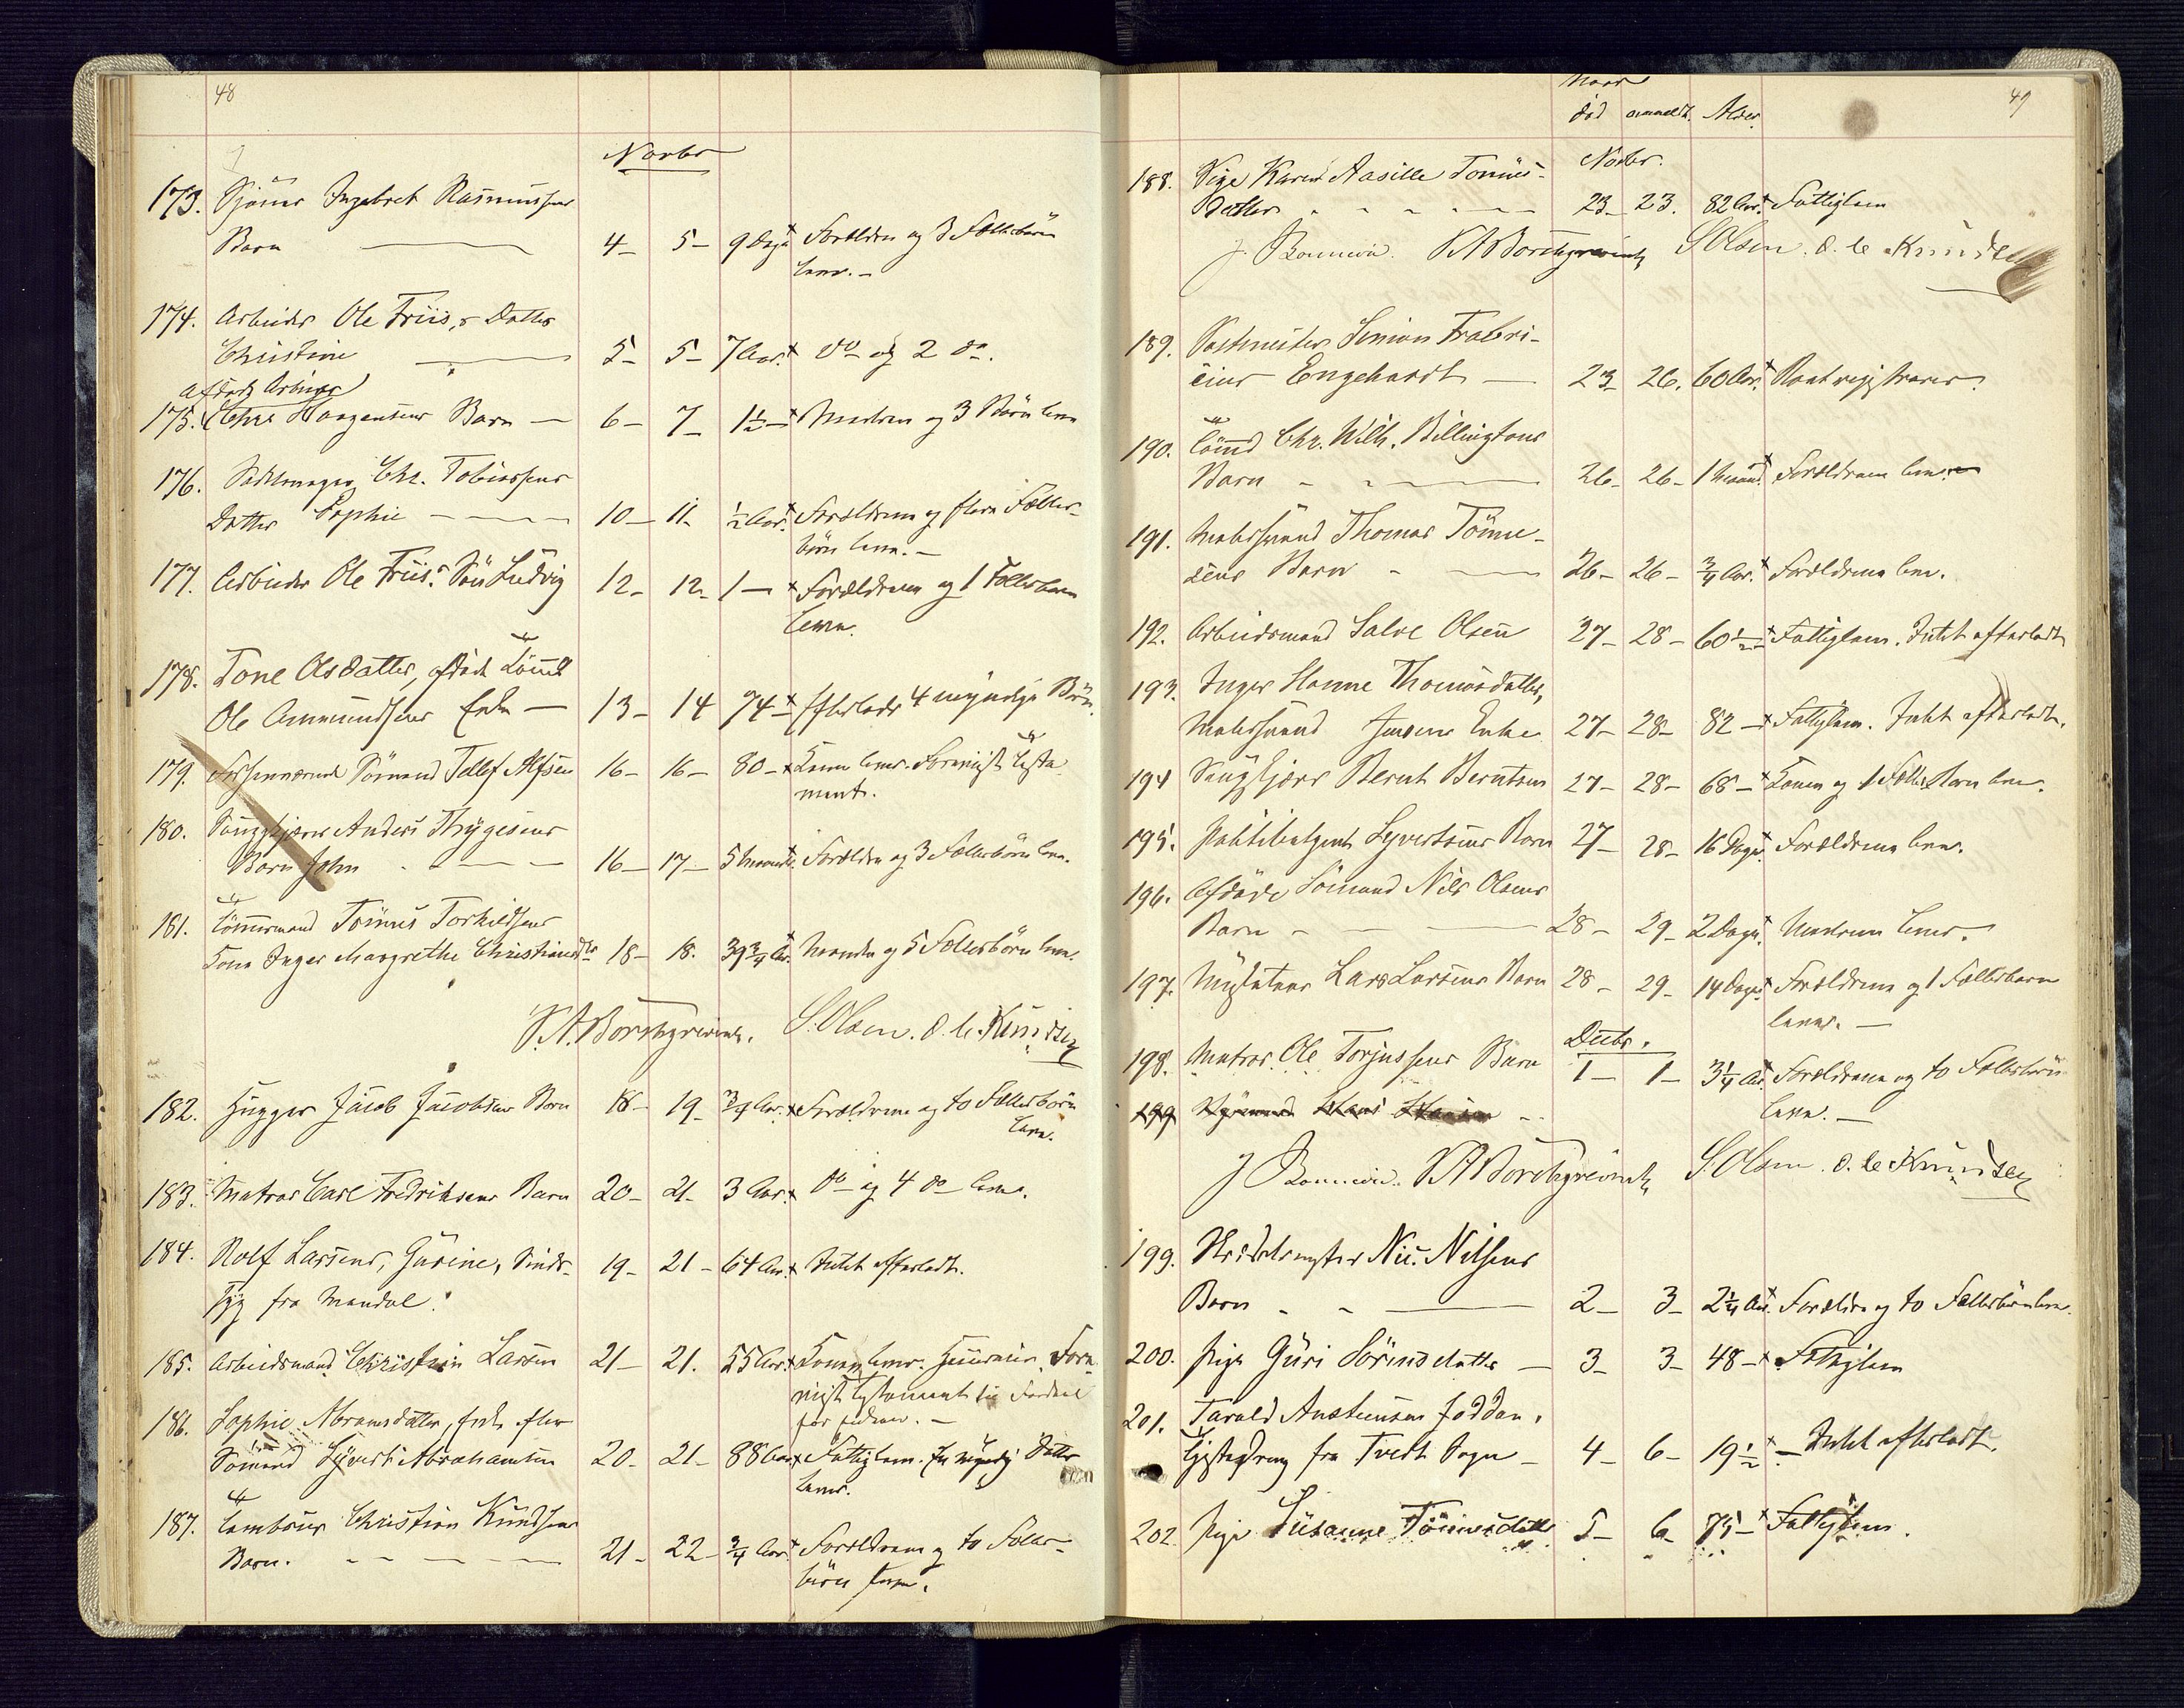 48
Novbr
173. Sjömd Ingebret Rasmussens
Barn 4 – 5 – 9 Dage x Forældre og 3 Fællesbörn
leve. –
174. Arbeider Ole Friis's Datter
Christine 5 – 5 – 7 Aar. x do og 2 do.
Afdøde Arbeider
175. Chr. Haagensens Barn – 6 – 7 – 1 1/2 – x Moderen og 3 Börn leve
176. Sadelmager Chr. Tobiassens
Datter Sophie 10 – 11 – 1/2 Aar. x Forældrene og flere Fælles-
börn leve. –
177. Arbeider Ole Friis's Sön Ludvig 12 – 12 – 1 – x Forældrene og 1 Fællesbarn
leve.
178. Tone Olsdatter, afdöde Tömmd
Ole Ammundsens Enke – 13 – 14 74 – x Efterlader 4 myndige Börn.
179. Sömand Tellef Alfsen 16 – 16 – 80 – x Konen lever. Testa
ment.
180. Anders Thygesens
Barn John 16 – 17 – 5 Maaned. Forældre og 3 Fællesbörn leve.
181. Tömmermand Tönnes Torkildsens
Kone Inger Margrethe Christiansdtr 18 – 18. 39 3/4 Aar. Manden og 5 Fællesbörn leve.
V. A. Borchgrevink. S. Olsen. O. C. Knudsen
182. Hugger Jacob Jacobsens Barn 18 – 19 – 3/4 Aar. x Forældrene og to Fællesbörn
leve.
183. Matros Carl Fredriksens Barn 20 – 21 – 3 Aar. x do og 4 do leve.
184. Rolf Larsens, Gurine, Sinds-
syg fra Mandal. 19 – 21 – 64 Aar. x Intet efterladt.
185. Arbeidsmand Christian Larsen 21 – 21. 55 Aar. x Konen lever.
Testament til Fordeel
for
186. Sophie Abramsdatter, Enke efter
Sömand Syvert Abrahamsen 20 – 21 – 88 Aar x Fattiglem. En myndig Datter
lever.
187. Tambour Christian Knudsens
Barn. 21 – 22 – 3/4 Aar. x Forældrene og to Fælles-
börn leve.
49
Naar
död anmeldt. Alder.
Novbr.
188. Pige Karen Aasille Tönnes-
Datter 23 – 23. 82 Aar. x Fattiglem
J. Bonnevie. V A Borchgrevink S Olsen. O. C. Knudsen
189. Postmester Simon Frabri-
cius Engehardt – 23 – 26. 60 Aar. x
190. Tömmd Chr. Wilh. Billingtons
Barn 26 – 26 – 1 Maaned. x Forældrene leve.
191. Mathssvend Thomas Tönne-
sens Barn 26 – 26 – 3/4 Aar. x Forældrene leve.
192. Arbeidsmand Salve Olsen 27 – 28 – 60 1/2 – x Fattiglem. Intet efterladt
193. Inger Hanne Thomasdatter,
Jensens Enke 27 – 28 – 82 – x Fattiglem. Intet efterladt.
194 Berent Berntsen 27 – 28 – 68 – x Konen og 1 Fælles Barn leve.
195. Politibetjent Syvertsens Barn 27 – 28 – 16 Dage. x Forældrene leve.
196. Afdöde Sömand Nils Olsens
Barn 28 – 29 – 2 Dage. x Moderen lever.
197. Lars Larsens Barn 28 – 29 – 14 Dage. x Forældrene og 1 Fællesbarn
lever. –
Decbr.
198. Matros Ole Torjussens Barn 1 – 1 – 3 1/4 Aar. x Forældrene og to Fællesbörn
leve. –
199
J Bonnevie. V A Borchgrevink S. Olsen. O. C. Knudsen
199. Nic. Nilsens
Barn 2 – 3 – 2 1/4 Aar. x Forældre og to Fællesbörn leve.
200. Pige Guri Sörensdatter – 3 – 3 – 48 – x Fattiglem
201. Tarald Austensen Joddan,
Tjenstedreng fra Tvedt Sogn – 4 – 6 – 19 1/2 x – Intet efterladt.
202. Pige Susanne Tönnesdatter 5 – 6 – 75 – x Fattiglem.